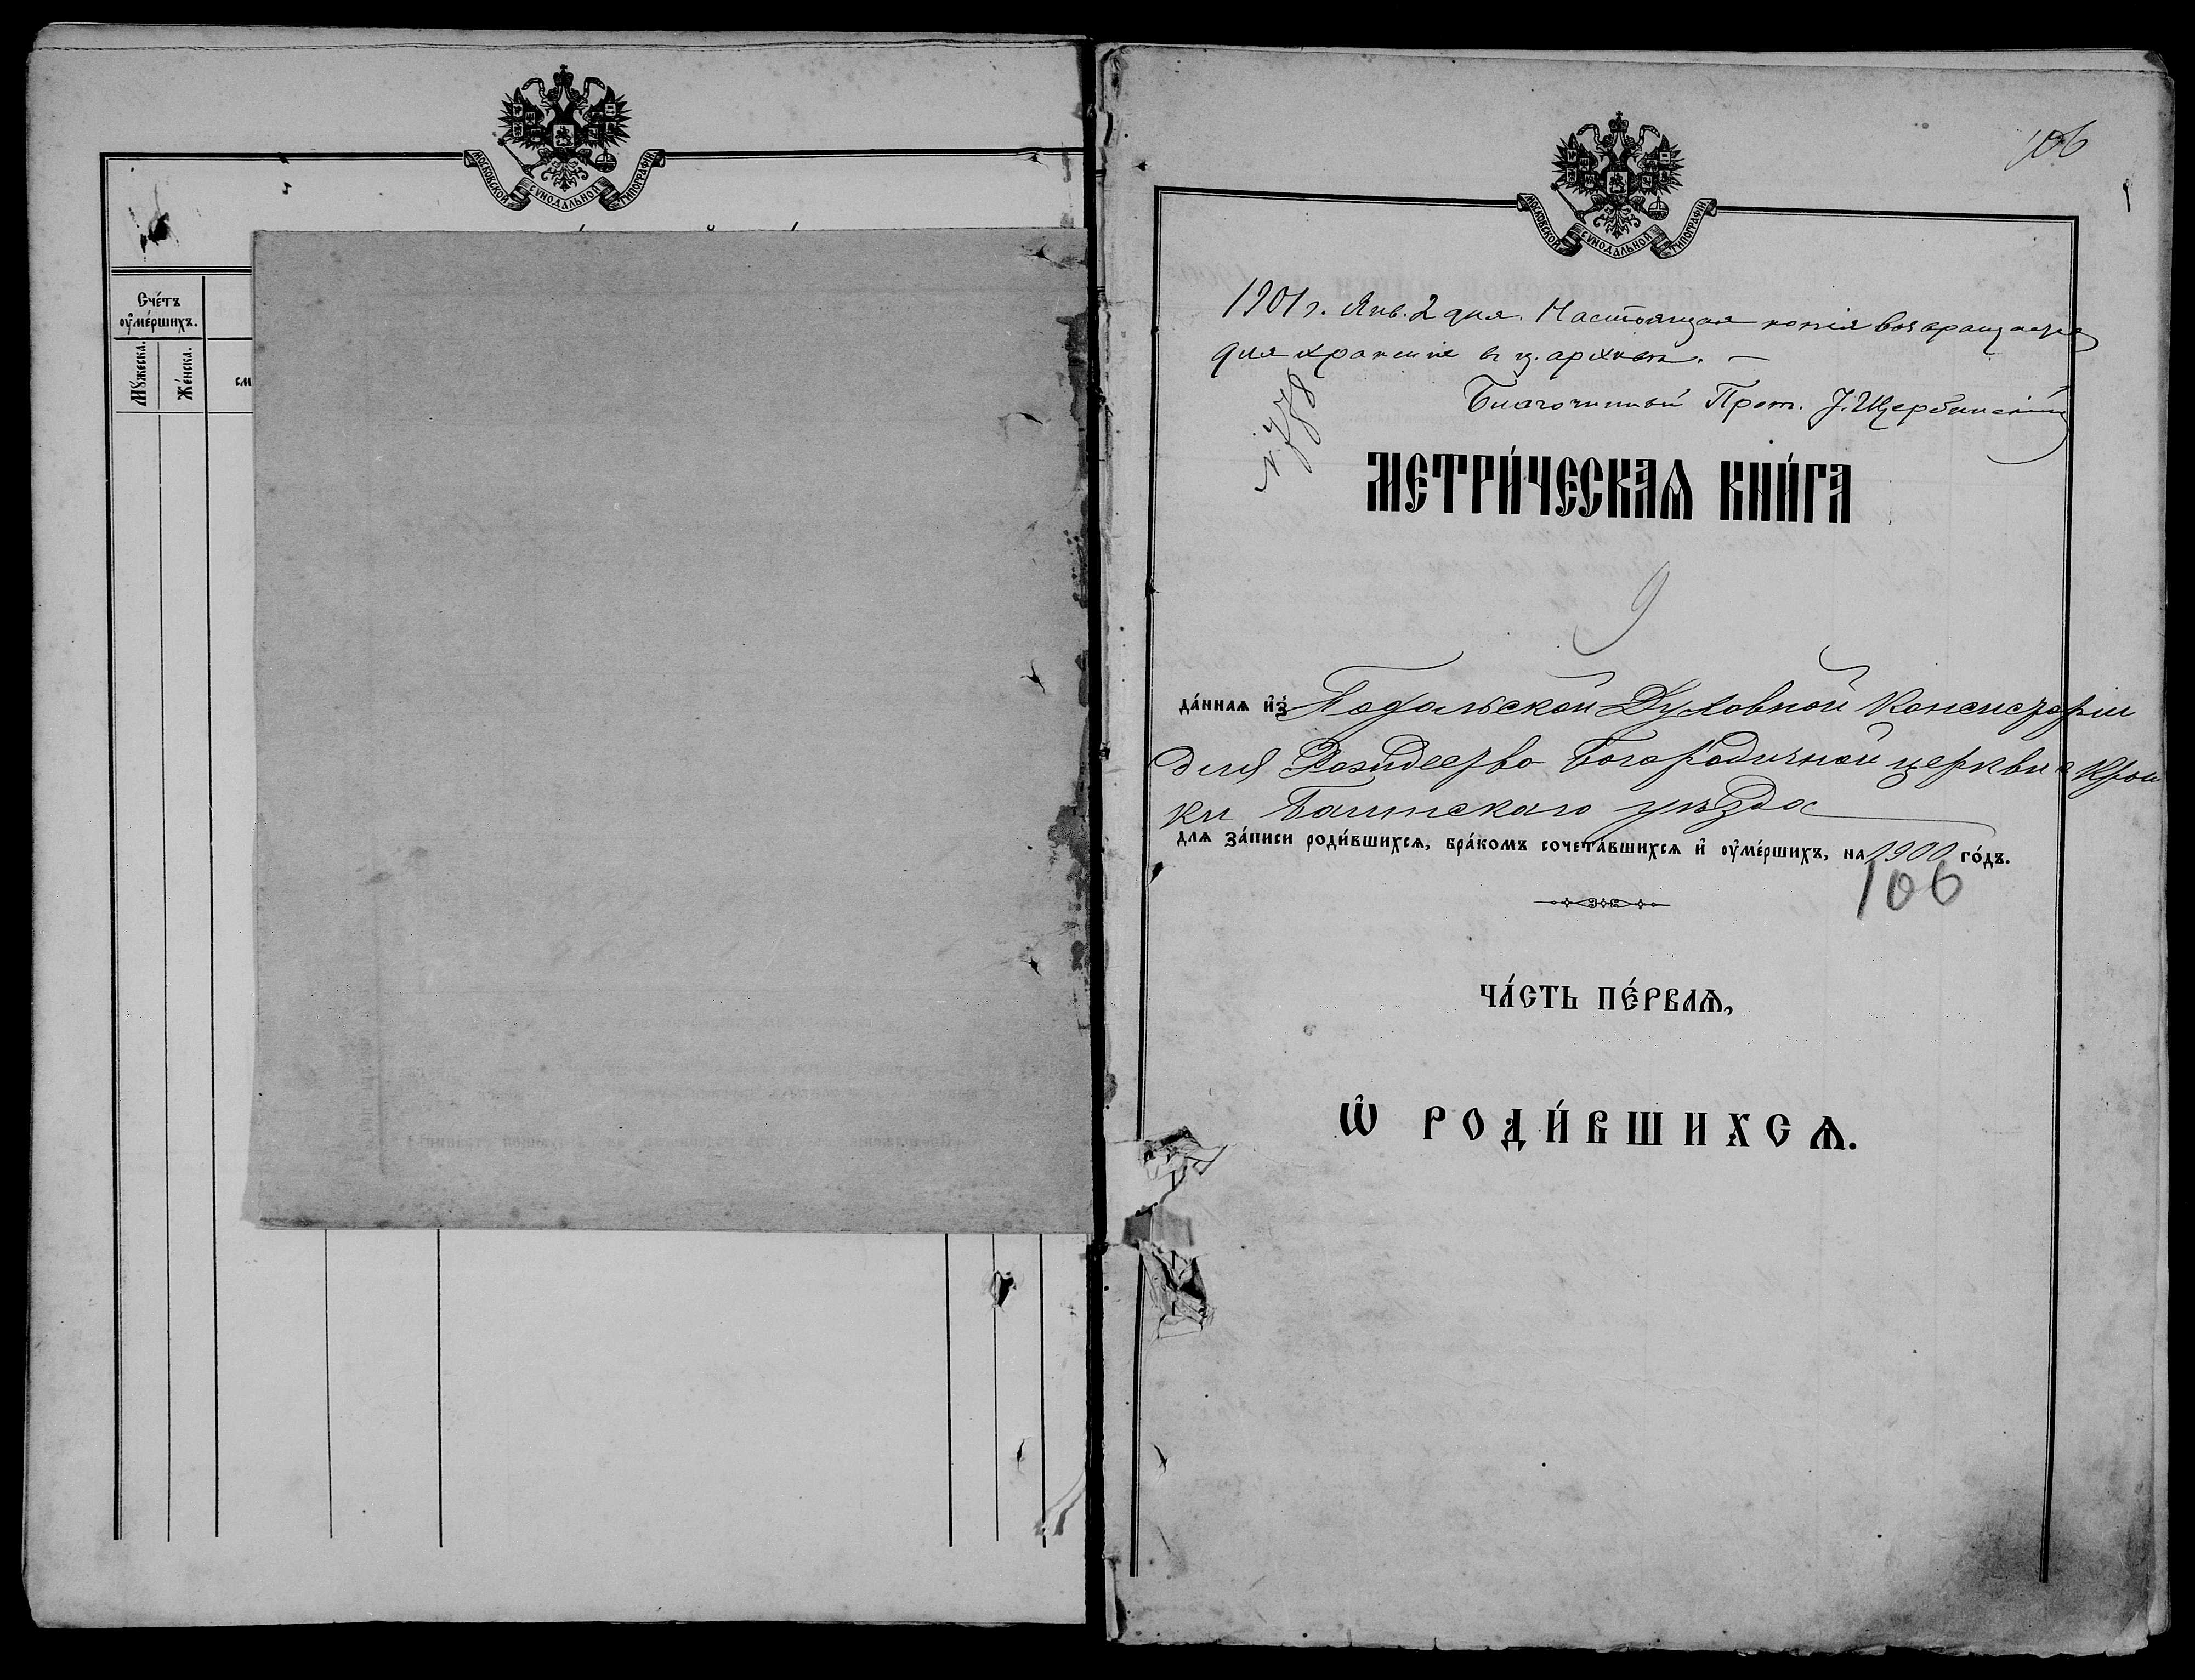 МОСКОВСКОЙ СѴНОДАЛЬНОЙ ТИПОГРАФІИ
Сче́тъ
оу҆ме́ршихъ.
Мꙋ́жеска.
Же́нска.
см
106
МОСКОВСКОЙ СѴНОДАЛЬНОЙ ТИПОГРАФІИ
1901 г. Янв. 2 дня. Настоящая копія возвращается
для храненія въ ц. архивъ. —
Благочинный Прот. І. Щербинскій
№ 778
МЕТРИ́ЧЕСКАѦ КНИ́ГА
9
да́ннаѧ и҆з̾ Подольской Духовной Консисторіи
для Рождество Богородичной церкви с. Крои
ки Балтскаго уѣзда
длѧ за́писи роди́вшихсѧ, бра́комъ сочета́вшихсѧ и҆ оу҆ме́ршихъ, на 1900 го́дъ.
106
ЧА́СТЬ ПЕ́РВАѦ,
Ѡ҆ РОДИ́ВШИХСѦ.